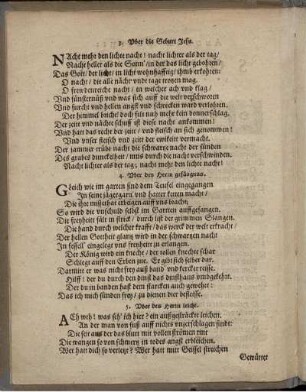 3. Vber die Geburt Jesu.
NAcht mehr den lichte nacht! nacht lichter als der tag/
Nacht heller als die Sonn'/ in der das licht gebohren/
Das Gott/ der licht/ in licht wohnhafftig/ ihmb erkohren/
O nacht/ die alle nächt' vnd tage trotzen mag.
O frewdenreiche nacht/ in welcher ach vnd klag/
Vnd finsternüß vnd was sich auff die welt verschworen
Vnd furcht vnd hellen angst vnd schrecken ward verlohren.
Der himmel bricht! doch felt nuh mehr kein donnerschlag.
Der zeit vnd nächte schuff ist diese nacht ankommen!
Vnd hatt das recht der zeit/ vnd fleisch an sich genommen!
Vnd vnser fleisch vnd zeit der ewikeit vermacht.
Der jammer trübe nacht die schwartze nacht der sünden
Des grabes dunckelheit/ mus durch die nacht verschwinden.
Nacht lichter als der tag; nacht mehr den lichte nacht!
4. Vber des Herrn gefängnus.
GLeich wie im garten sind dem Teufel eingegangen
In seine
Die ihr
So wird die vnschuld selbst im Garten auffgefangen.
Die freyheit fält in strick/ durch list der grimmen Slangen.
Die hand durch welcher krafft/ das werck der welt erkracht/
Der hellen Goetter glantz wird in der schwartzen nacht
In fesseln eingelegt vns freyheit zu erlangen.
Der König wird ein knecht/ der tollen knechte schar
Schlegt auff den Erben zu. Er gibt sich selber dar.
Damit er was nicht frey auß band vnd kercker reisse.
Hilff! der du durch den
Der du in banden hast den starcken auch gewehrt/
Das ich mich sünden frey/ zu dienen dir befleisse.
5. Vber des Herrn leiche.
ACh weh! was seh' ich hier? ein außgestreckte leichen.
An der man von fuß auff nichts vngeschlagen findt:
Die
Die wangen so von schmertz in todes angst erbleichen.
Wer hatt dich so verletzt? Wer hatt mitt Geissel streichen
Gewütter